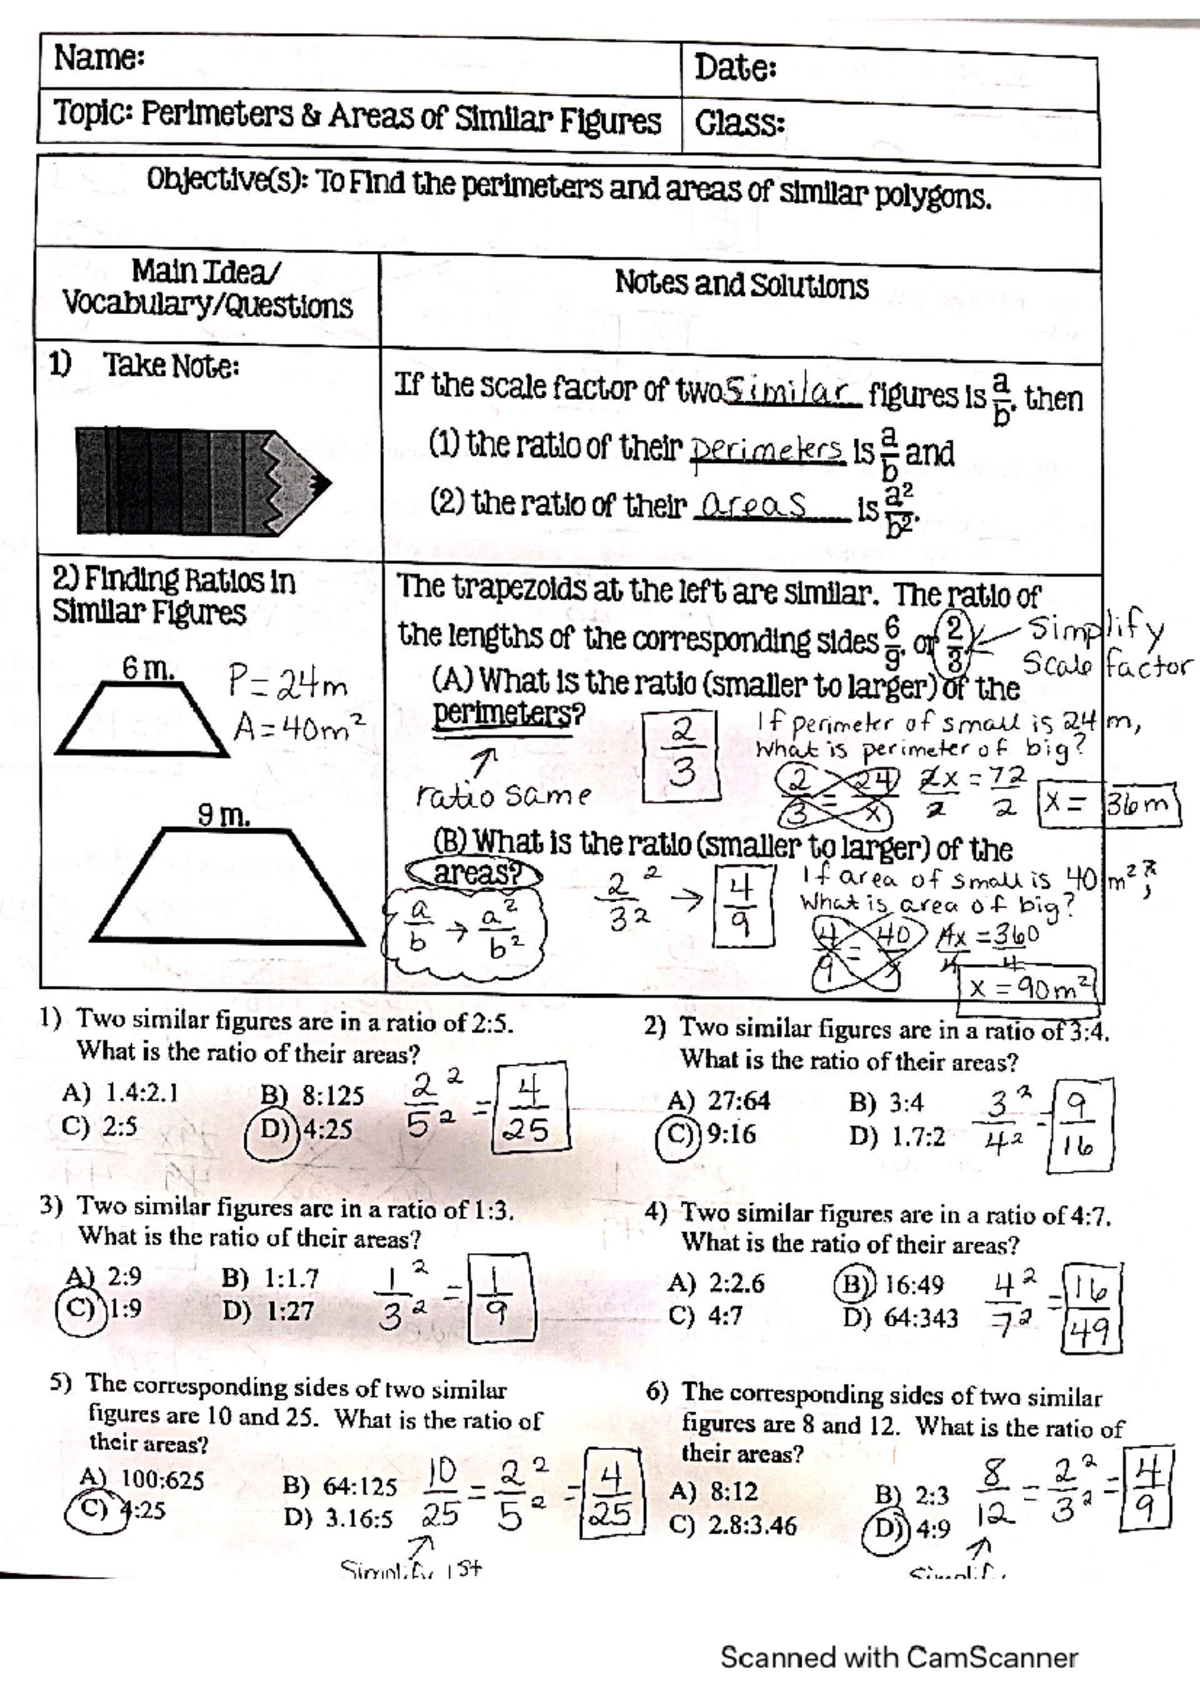 Name:
Date:
Topic: Perimeters & Areas of Similar Figures
Class:
Objective(s): To Find the perimeters and areas of similar polygons.
Main Idea/
Vocabulary/Questions
Notes and Solutions
1) Take Note:
If the scale factor of two similar figures is a/b, then
(1) the ratio of their perimeters is a/b and
(2) the ratio of their areas is a²/b².
2) Finding Ratios in
Similar Figures
6 m.
P = 24m
A = 40m²
9 m.
The trapezoids at the left are similar. The ratio of
the lengths of the corresponding sides 6/9, or 2/3.
Simplify
Scale factor
(A) What is the ratio (smaller to larger) of the
perimeters?
ratio same
2/3
If perimeter of small is 24 m,
What is perimeter of big?
2/3 = 24/x
2x/2 = 72/2
x = 36m
(B) What is the ratio (smaller to larger) of the
areas?
a/b → a²/b²
2²/3² → 4/9
If area of small is 40 m²,
What is area of big?
4/9 = 40/x
4x/4 = 360/4
x = 90m²
1) Two similar figures are in a ratio of 2:5.
What is the ratio of their areas?
A) 1.4:2.1
B) 8:125
C) 2:5
D) 4:25
2²/5² = 4/25
2) Two similar figures are in a ratio of 3:4.
What is the ratio of their areas?
A) 27:64
B) 3:4
C) 9:16
D) 1.7:2
3²/4² = 9/16
3) Two similar figures are in a ratio of 1:3.
What is the ratio of their areas?
A) 2:9
B) 1:1.7
C) 1:9
D) 1:27
1²/3² = 1/9
4) Two similar figures are in a ratio of 4:7.
What is the ratio of their areas?
A) 2:2.6
B) 16:49
C) 4:7
D) 64:343
4²/7² = 16/49
5) The corresponding sides of two similar
figures are 10 and 25. What is the ratio of
their areas?
A) 100:625
B) 64:125
C) 4:25
D) 3.16:5
10/25 = 2²/5² = 4/25
Simplify 1st
6) The corresponding sides of two similar
figures are 8 and 12. What is the ratio of
their areas?
A) 8:12
B) 2:3
C) 2.8:3.46
D) 4:9
8/12 = 2²/3² = 4/9
Scanned with CamScanner